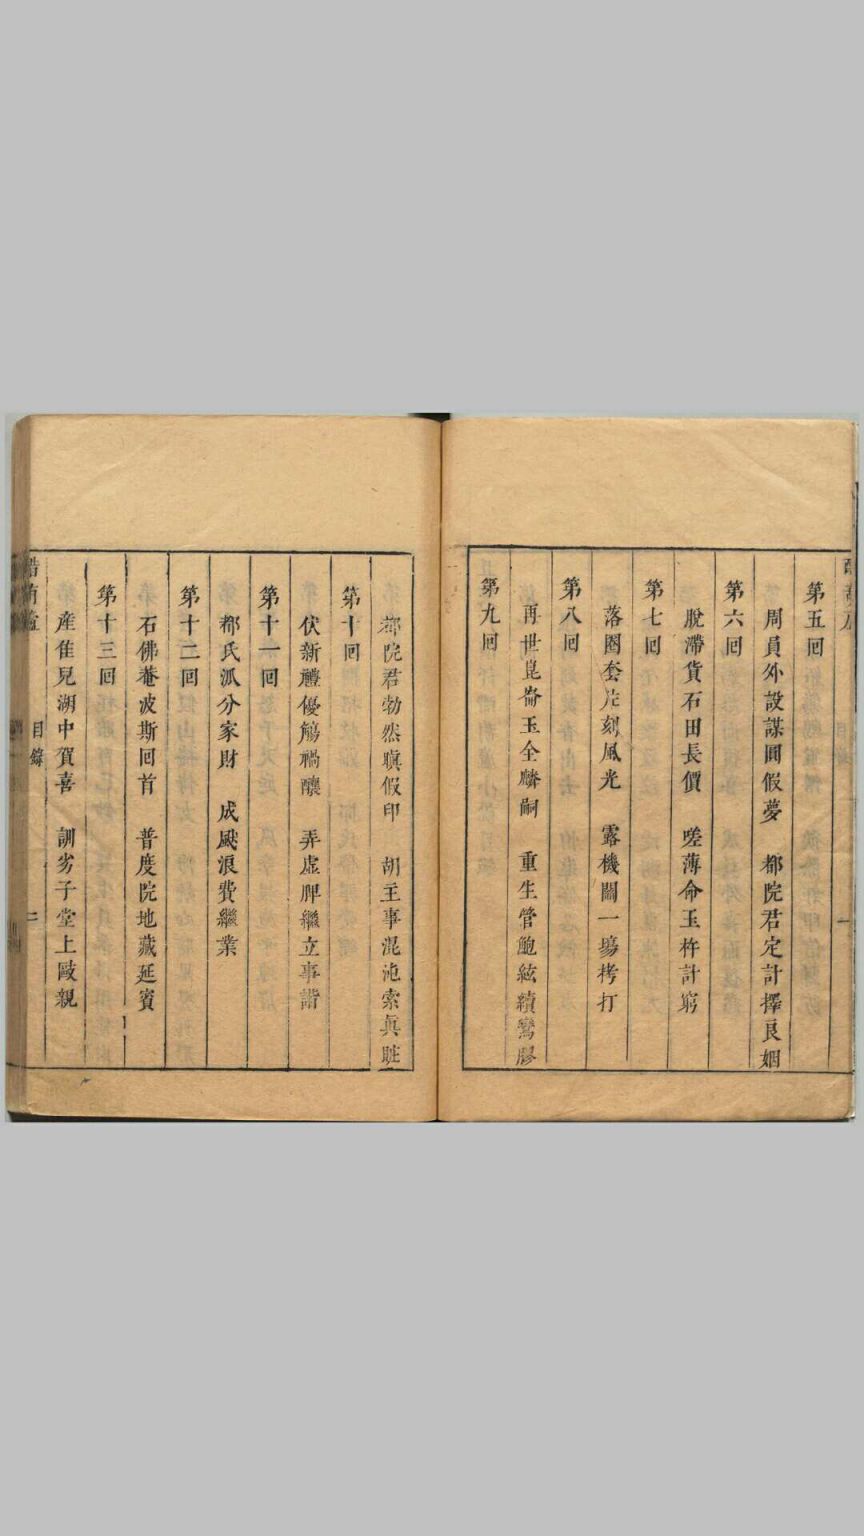 第五回
周員外設謀圓假夢 都院君定計擇良姻
第六回
脫滯貨石田長價 嗟薄命玉杵計窮
第七回
落圈套片刻風光 露機關一塲拷打
第八回
再世崑崙玉全麟嗣 重生管鮑絃續鸞膠
第九回
都院君勃然嗔假印 胡主事混沌索真贓
第十回
伏新禮優觴禍釀 弄虛脾繼立事諧
第十一回
都氏派分家財 成飈浪費繼業
第十二回
石佛菴波斯回首 普度院地藏延賓
第十三回
產佳兒湖中賀喜 訓劣子堂上毆親
目錄
二